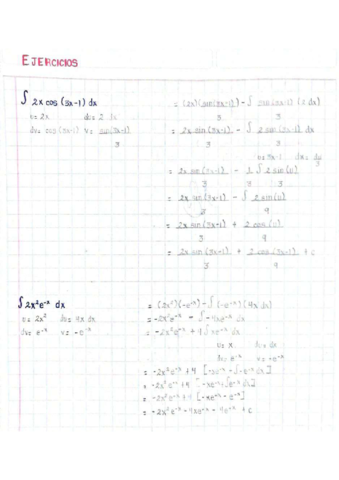 EJERCICIOS
∫ 2x cos (3x-1) dx = (2x)(sin(3x-1))/3 - ∫ sin(3x-1)/3 (2 dx)
u= 2x du= 2 dx
dv= cos (3x-1) v= sin(3x-1)/3 = 2x sin(3x-1)/3 - ∫ 2 sin(3x-1)/3 dx
u=3x-1 dx= du/3
= 2x sin(3x-1)/3 - 1/3 ∫ 2 sin(u)/3
= 2x sin(3x-1)/3 - ∫ 2 sin(u)/9
= 2x sin(3x-1)/3 + 2 cos(u)/9
= 2x sin(3x-1)/3 + 2 cos(3x-1)/9 + c
∫ 2x²e⁻ˣ dx = (2x²)(-e⁻ˣ) - ∫(-e⁻ˣ)(4x dx)
u= 2x² du= 4x dx = -2x²e⁻ˣ - ∫ -4xe⁻ˣ dx
dv= e⁻ˣ v= -e⁻ˣ = -2x²e⁻ˣ + 4∫xe⁻ˣ dx
u= x du= dx
dv= e⁻ˣ v= -e⁻ˣ
= -2x²e⁻ˣ + 4 [-xe⁻ˣ - ∫-e⁻ˣ dx]
= -2x²e⁻ˣ + 4 [-xe⁻ˣ + ∫e⁻ˣ dx]
= -2x²e⁻ˣ + 4 [-xe⁻ˣ - e⁻ˣ]
= -2x²e⁻ˣ - 4xe⁻ˣ - 4e⁻ˣ + c